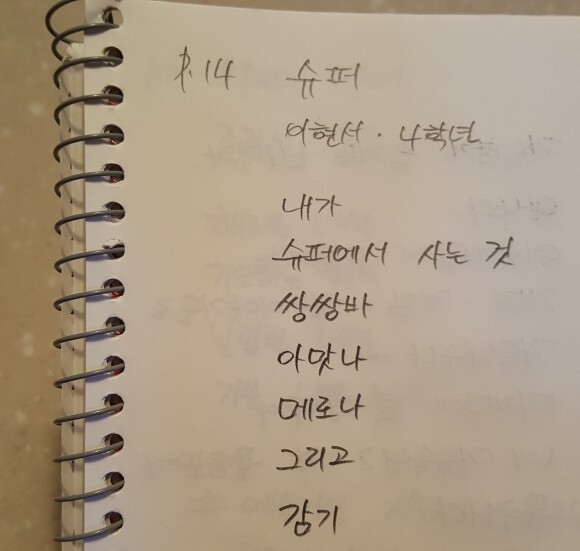 p.14 슈퍼
이현서 · 4학년
내가
슈퍼에서 사는 것
쌍쌍바
아맛나
메로나
그리고
감기